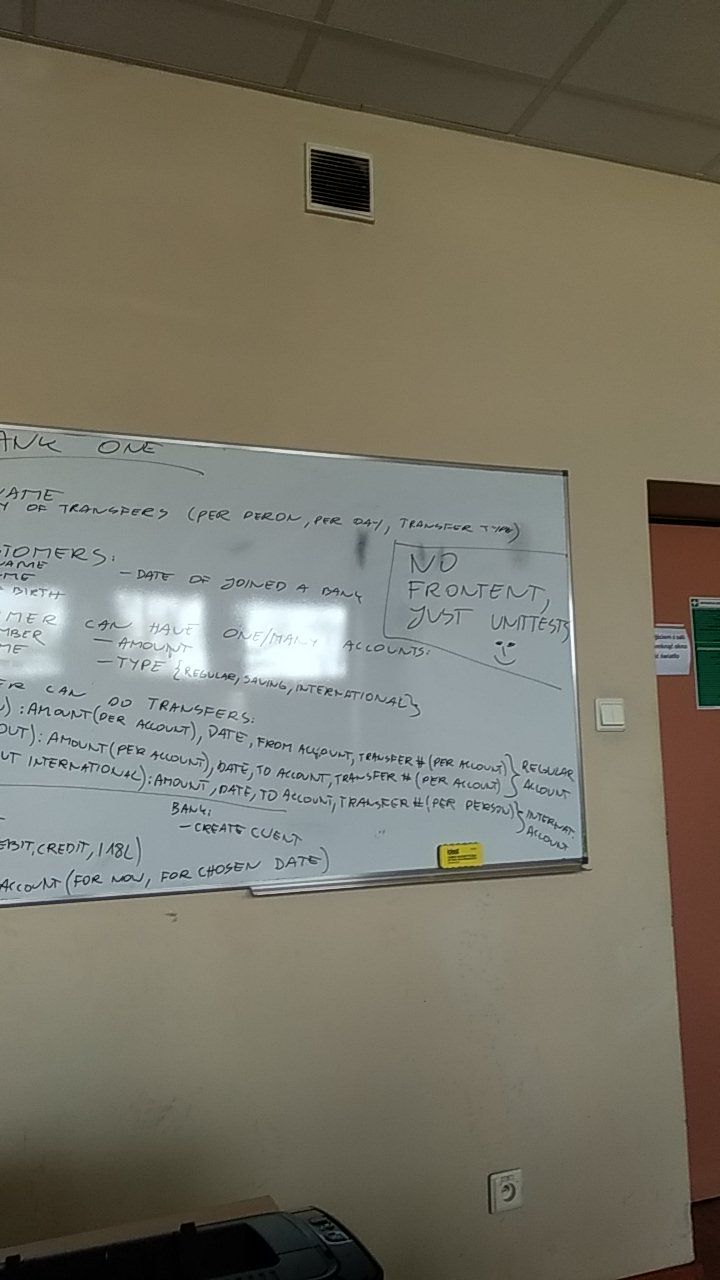 ANK ONE
NAME
Y OF TRANSFERS (PER PERON, PER DAY, TRANSFER TYPE)
STOMERS:
NAME
ME
BIRTH
- DATE OF JOINED A BANK
NO
FRONTENT,
JUST UNITTESTS
OMER CAN HAVE ONE/MANY ACCOUNTS:
MBER
ME
- AMOUNT
- TYPE {REGULAR, SAVING, INTERNATIONAL}
ER CAN DO TRANSFERS:
N): AMOUNT (PER ACCOUNT), DATE, FROM ACCOUNT, TRANSFER # (PER ACCOUNT)
OUT): AMOUNT (PER ACCOUNT), DATE, TO ACCOUNT, TRANSFER # (PER ACCOUNT)
} REGULAR
ACCOUNT
UT INTERNATIONAL): AMOUNT, DATE, TO ACCOUNT, TRANSFER # (PER PERSON)
} INTERNAT.
ACCOUNT
BANK:
- CREATE CLIENT
EBIT, CREDIT,
ACCOUNT (FOR NOW, FOR CHOSEN DATE)
ideal